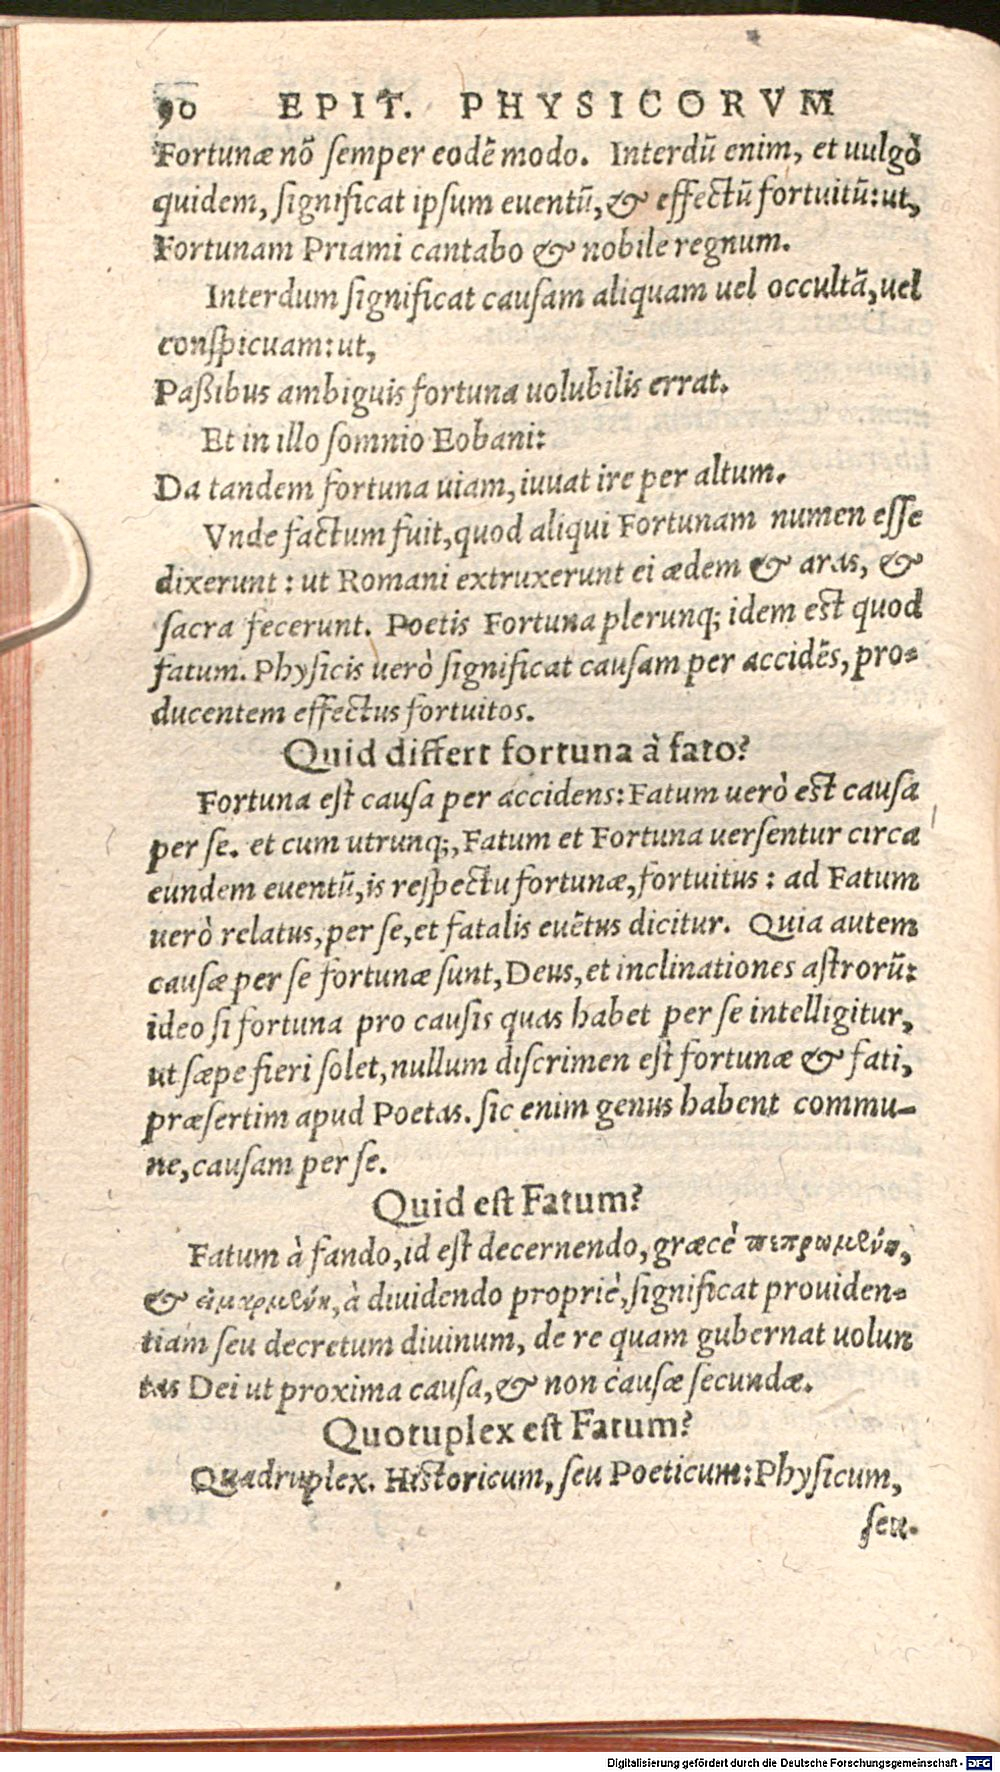 90 EPIT. PHYSICORVM
Fortunæ nõ semper eodẽ modo. Interdũ enim, et uulgò
quidem, significat ipsum euentũ, & effectũ fortuitũ: ut,
Fortunam Priami cantabo & nobile regnum.
Interdum significat causam aliquam uel occultã, uel
conspicuam: ut,
Paßibus ambiguis fortuna uolubilis errat.
Et in illo somnio Eobani:
Da tandem fortuna uiam, iuuat ire per altum.
Vnde factum fuit, quod aliqui Fortunam numen esse
dixerunt: ut Romani extruxerunt ei ædem & aras, &
sacra fecerunt. Poetis Fortuna plerunq; idem est quod
fatum. Physicis uerò significat causam per accidẽs, pro=
ducentem effectus fortuitos.
Quid differt fortuna à fato?
Fortuna est causa per accidens: Fatum uerò est causa
per se. et cum utrunq;, Fatum et Fortuna uersentur circa
eundem euentũ, is respectu fortunæ, fortuitus: ad Fatum
uerò relatus, per se, et fatalis euẽtus dicitur. Quia autem
causæ per se fortunæ sunt, Deus, et inclinationes astrorũ:
ideo si fortuna pro causis quas habet per se intelligitur,
ut sæpe fieri solet, nullum discrimen est fortunæ & fati,
præsertim apud Poetas. sic enim genus habent commu-
ne, causam per se.
Quid est Fatum?
Fatum à fando, id est decernendo, græcè πεπρωμένη,
& εἱμαρμένη, à diuidendo propriè, significat prouiden=
tiam seu decretum diuinum, de re quam gubernat uolun
tas Dei ut proxima causa, & non causæ secundæ.
Quotuplex est Fatum?
Quadruplex. Historicum, seu Poeticum: Physicum,
seu.
Digitalisierung gefördert durch die Deutsche Forschungsgemeinschaft - DFG